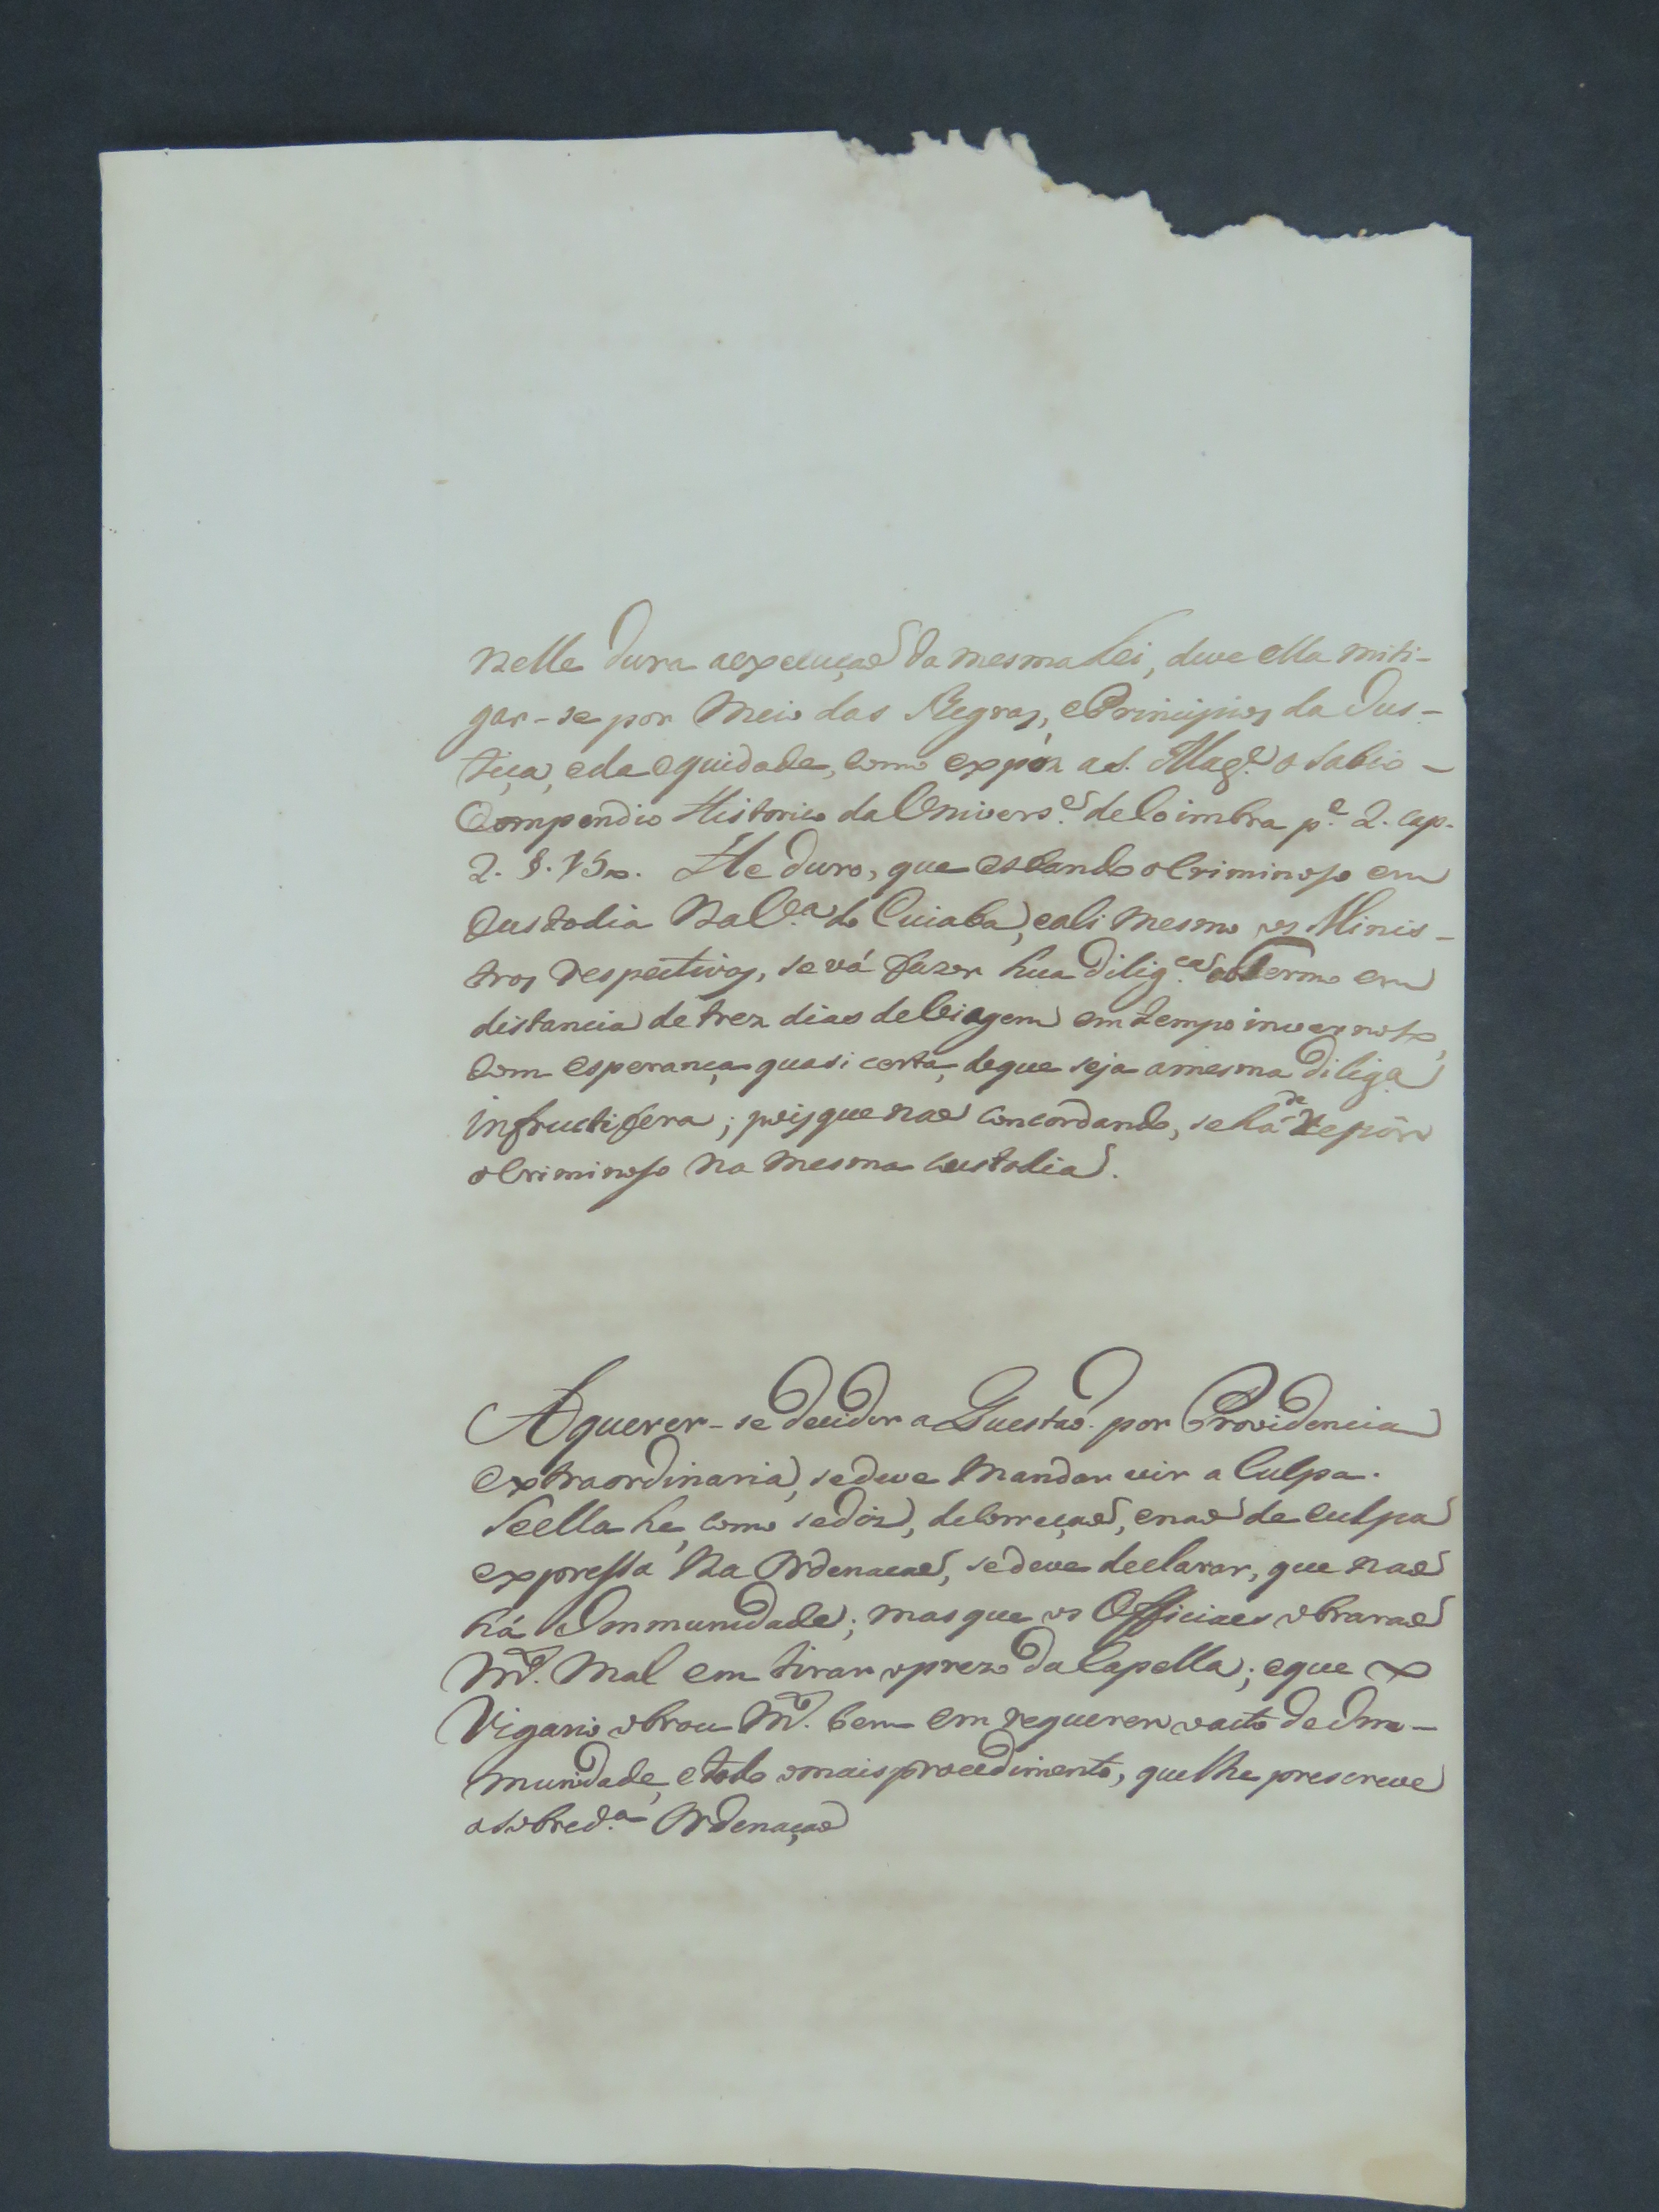 nelle dura aexecuçaõ da mesma Lei, deve ella miti-
gar-se por meio das Regras, e Principios da Jus-
tiça, e da equidade, como expóz a S. Mag.e o sabio
Compendio Historico da Univers.e de Coimbra p.e 2. cap.
2. §. 15 He duro, que estando o Criminoso em
Custodia na V.a do Cuiaba, e ali mesmo os Minis-
tros respectivos, se vá fazer hua dilig.ca ao Termo em
distancia de trez dias de Viagem em tempo invernoso,
com esperança quasi certa, de que seja a mesma dilig.a
infructifera; pois que naõ concordando, se há de repôr
o Criminoso na mesma custodia.
A querer-se decidir a Questaõ por Providencia
extraordinaria, se deve mandar vir a Culpa.
Se ella he, como se diz, de Correçaõ, e naõ de culpa
expressa na Ordenaçaõ, se deve declarar, que naõ
há Immunidade; mas que os Officiaes obraraõ
m.to mal em tirar o prezo da Capella; e que o
Vigario obrou m.to bem em requerer o acto de Im-
munidade, e todo o mais procedimento, que lhe prescreve
a sobred.a Ordenaçaõ